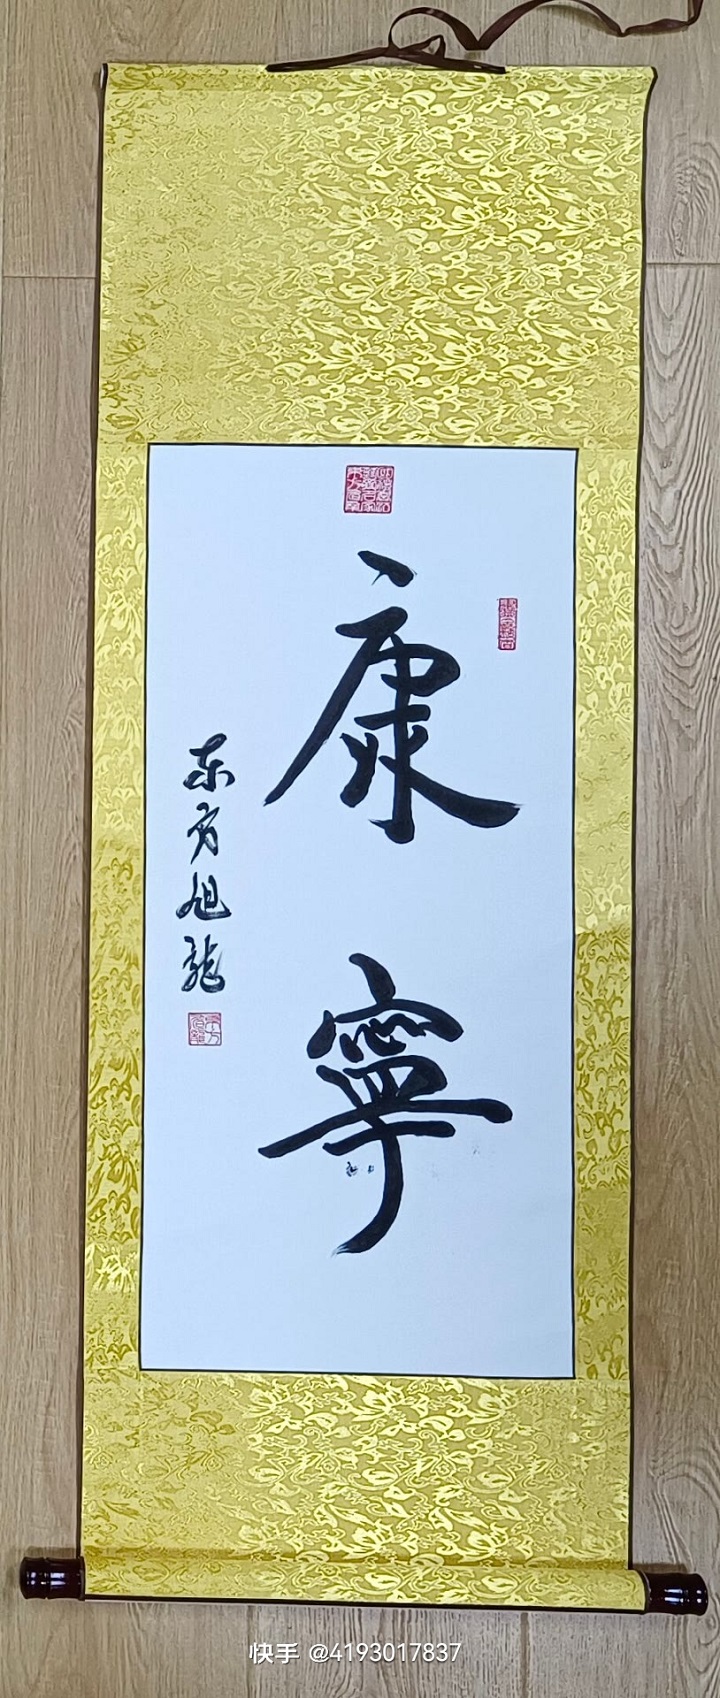 康寧
东方旭龍
快手 @4193017837